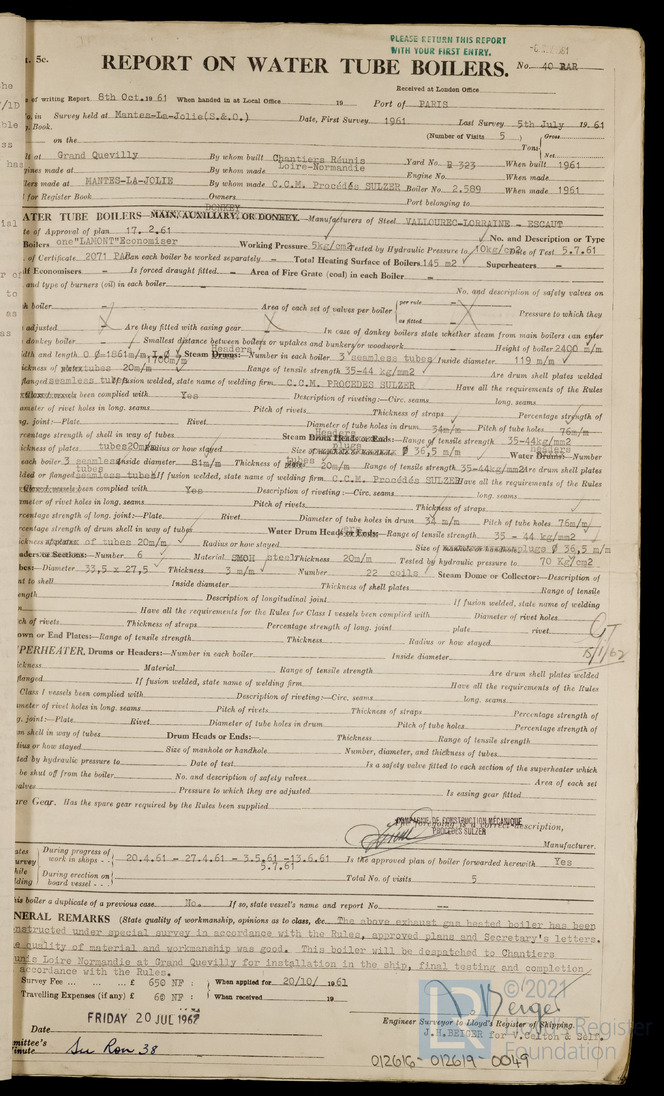 PLEASE RETURN THIS REPORT
WITH YOUR FIRST ENTRY.
t. 5c.
REPORT ON WATER TUBE BOILERS.
No. 40 PAR
Received at London Office
of writing Report 8th Oct. 1961 When handed in at Local Office 19 Port of PARIS
o. in Survey held at Mantes-La-Jolie(S.&O.) Date, First Survey 1961 Last Survey 5th July 1961
. Book. (Number of Visits 5 )
on the Tons Gross Net
lt at Grand Quevilly By whom built Chantiers Réunis Loire-Normandie Yard No. 323 When built 1961
gines made at By whom made Engine No. When made
lers made at MANTES-LA-JOLIE By whom made C.C.M. Procédés SULZER Boiler No. 2.589 When made 1961
for Register Book Owners Port belonging to
ATER TUBE BOILERS MAIN, AUXILIARY, OR DONKEY. Manufacturers of Steel VALLOUREC-LORRAINE - ESCAUT
te of Approval of plan 17. 2.61 No. and Description or Type
Boilers one "LAMONT" Economiser Working Pressure 5kg/cm2 Tested by Hydraulic Pressure to 10kg/cm2 Date of Test 5.7.61
. of Certificate 2071 PAR Can each boiler be worked separately - Total Heating Surface of Boilers 145 m2 Superheaters -
lf Economisers - Is forced draught fitted - Area of Fire Grate (coal) in each Boiler -
and type of burners (oil) in each boiler -
No. and description of safety valves on
h boiler Area of each set of valves per boiler per rule as fitted Pressure to which they
adjusted Are they fitted with easing gear In case of donkey boilers state whether steam from main boilers can enter
donkey boiler - Smallest distance between boilers or uptakes and bunkers or woodwork Height of boiler 2400 m/m
dth and length Steam Drums:-Number in each boiler 3 seamless tubes Inside diameter 119 m/m
ickness of plates tubes 20m/m Range of tensile strength 35-44 kg/mm2 Are drum shell plates welded
flanged seamless tubes If fusion welded, state name of welding firm C.C.M. PROCEDES SULZER Have all the requirements of the Rules
vessels been complied with Yes Description of riveting:-Circ. seams long. seams
ameter of rivet holes in long. seams Pitch of rivets Thickness of straps Percentage strength of
g. joint:-Plate Rivet Diameter of tube holes in drum 34m/m Pitch of tube holes 76m/m
rcentage strength of shell in way of tubes Steam Drum Heads or Ends:- Headers Range of tensile strength 35-44kg/mm2
ickness of plates tubes 20m/m Radius or how stayed Size of manhole or handhole plugs Ø 36,5 m/m Water Drums:-Number headers
each boiler 3 seamless tubes Inside diameter 81m/m Thickness of plates tubes 20m/m Range of tensile strength 35-44kg/mm2 Are drum shell plates
lded or flanged seamless tubes If fusion welded, state name of welding firm C.C.M. Procédés SULZER Have all the requirements of the Rules
vessels been complied with Yes Description of riveting:-Circ. seams long. seams
meter of rivet holes in long. seams Pitch of rivets Thickness of straps
rcentage strength of long. joint:-Plate Rivet Diameter of tube holes in drum 34 m/m Pitch of tube holes 76m/m
rcentage strength of drum shell in way of tubes Water Drum Heads or Ends:- Range of tensile strength 35 - 44 kg/mm2
ickness of plates of tubes 20m/m Radius or how stayed Size of manhole or handhole plugs Ø 36,5 m/m
aders or Sections:-Number 6 Material SMOH steel Thickness 20m/m Tested by hydraulic pressure to 70 Kg/cm2
bes:-Diameter 33,5 x 27,5 Thickness 3 m/m Number 22 coils Steam Dome or Collector:-Description of
nt to shell Inside diameter Thickness of shell plates Range of tensile
ength Description of longitudinal joint If fusion welded, state name of welding
m Have all the requirements of the Rules for Class I vessels been complied with Diameter of rivet holes
ch of rivets Thickness of straps Percentage strength of long. joint plate rivet
own or End Plates:-Range of tensile strength Thickness Radius or how stayed
GT
15/1/62
PERHEATER, Drums or Headers:-Number in each boiler Inside diameter
ickness Material Range of tensile strength Are drum shell plates welded
flanged If fusion welded, state name of welding firm Have all the requirements of the Rules
Class I vessels been complied with Description of riveting:-Circ. seams long. seams
meter of rivet holes in long. seams Pitch of rivets Thickness of straps Percentage strength of
g. joint:-Plate Rivet Diameter of tube holes in drum Pitch of tube holes Percentage strength of
m shell in way of tubes Drum Heads or Ends:- Thickness Range of tensile strength
dius or how stayed Size of manhole or handhole Number, diameter, and thickness of tubes
ted by hydraulic pressure to Date of test Is a safety valve fitted to each section of the superheater which
be shut off from the boiler No. and description of safety valves Area of each set
valves Pressure to which they are adjusted Is easing gear fitted
are Gear. Has the spare gear required by the Rules been supplied
COMPAGNIE DE CONSTRUCTION MÉCANIQUE
PROCEDES SULZER
The foregoing is a correct description,
Manufacturer.
ates During progress of work in shops 20.4.61 - 27.4.61 - 3.5.61 -13.6.61 5.7.61 Is the approved plan of boiler forwarded herewith Yes
During erection on board vessel Total No. of visits 5
his boiler a duplicate of a previous case No. If so, state vessel's name and report No. --
NERAL REMARKS (State quality of workmanship, opinions as to class, &c. The above exhaust gas heated boiler has been
nstructed under special survey in accordance with the Rules, approved plans and Secretary's letters.
e quality of material and workmanship was good. This boiler will be despatched to Chantiers
unis Loire Normandie at Grand Quevilly for installation in the ship, final testing and completion
accordance with the Rules.
Survey Fee £ 650 NF : When applied for 20/10/ 1961
Travelling Expenses (if any) £ 60 NF : When received 19
FRIDAY 20 JUL 1962
Date
Engineer Surveyor to Lloyd's Register of Shipping.
J.H.BEIGER for V.Celton & Self.
mittee's
inute
012616-012619-0049
© 2021
LR
Lloyd's Register
Foundation